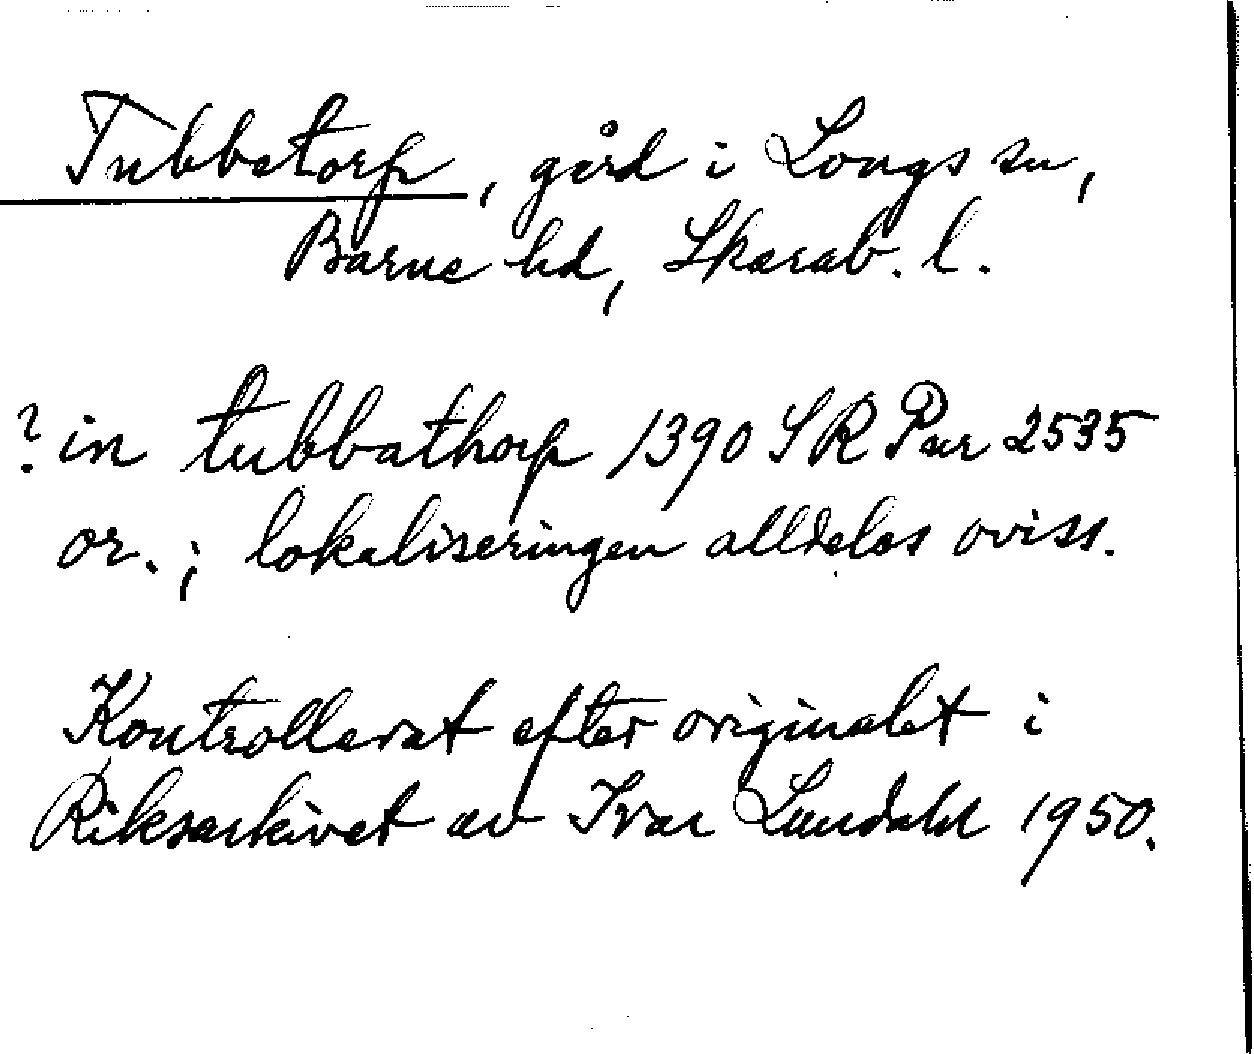 Tubbetorp, gård i Longs sn,
Barne hd, Skarab. l.
? in tubbathorp 1390 SRPer 2535
or.; lokaliseringen alldeles oviss.
Kontrollerat efter originalet i
Riksarkivet av Ivar Lundahl 1950.